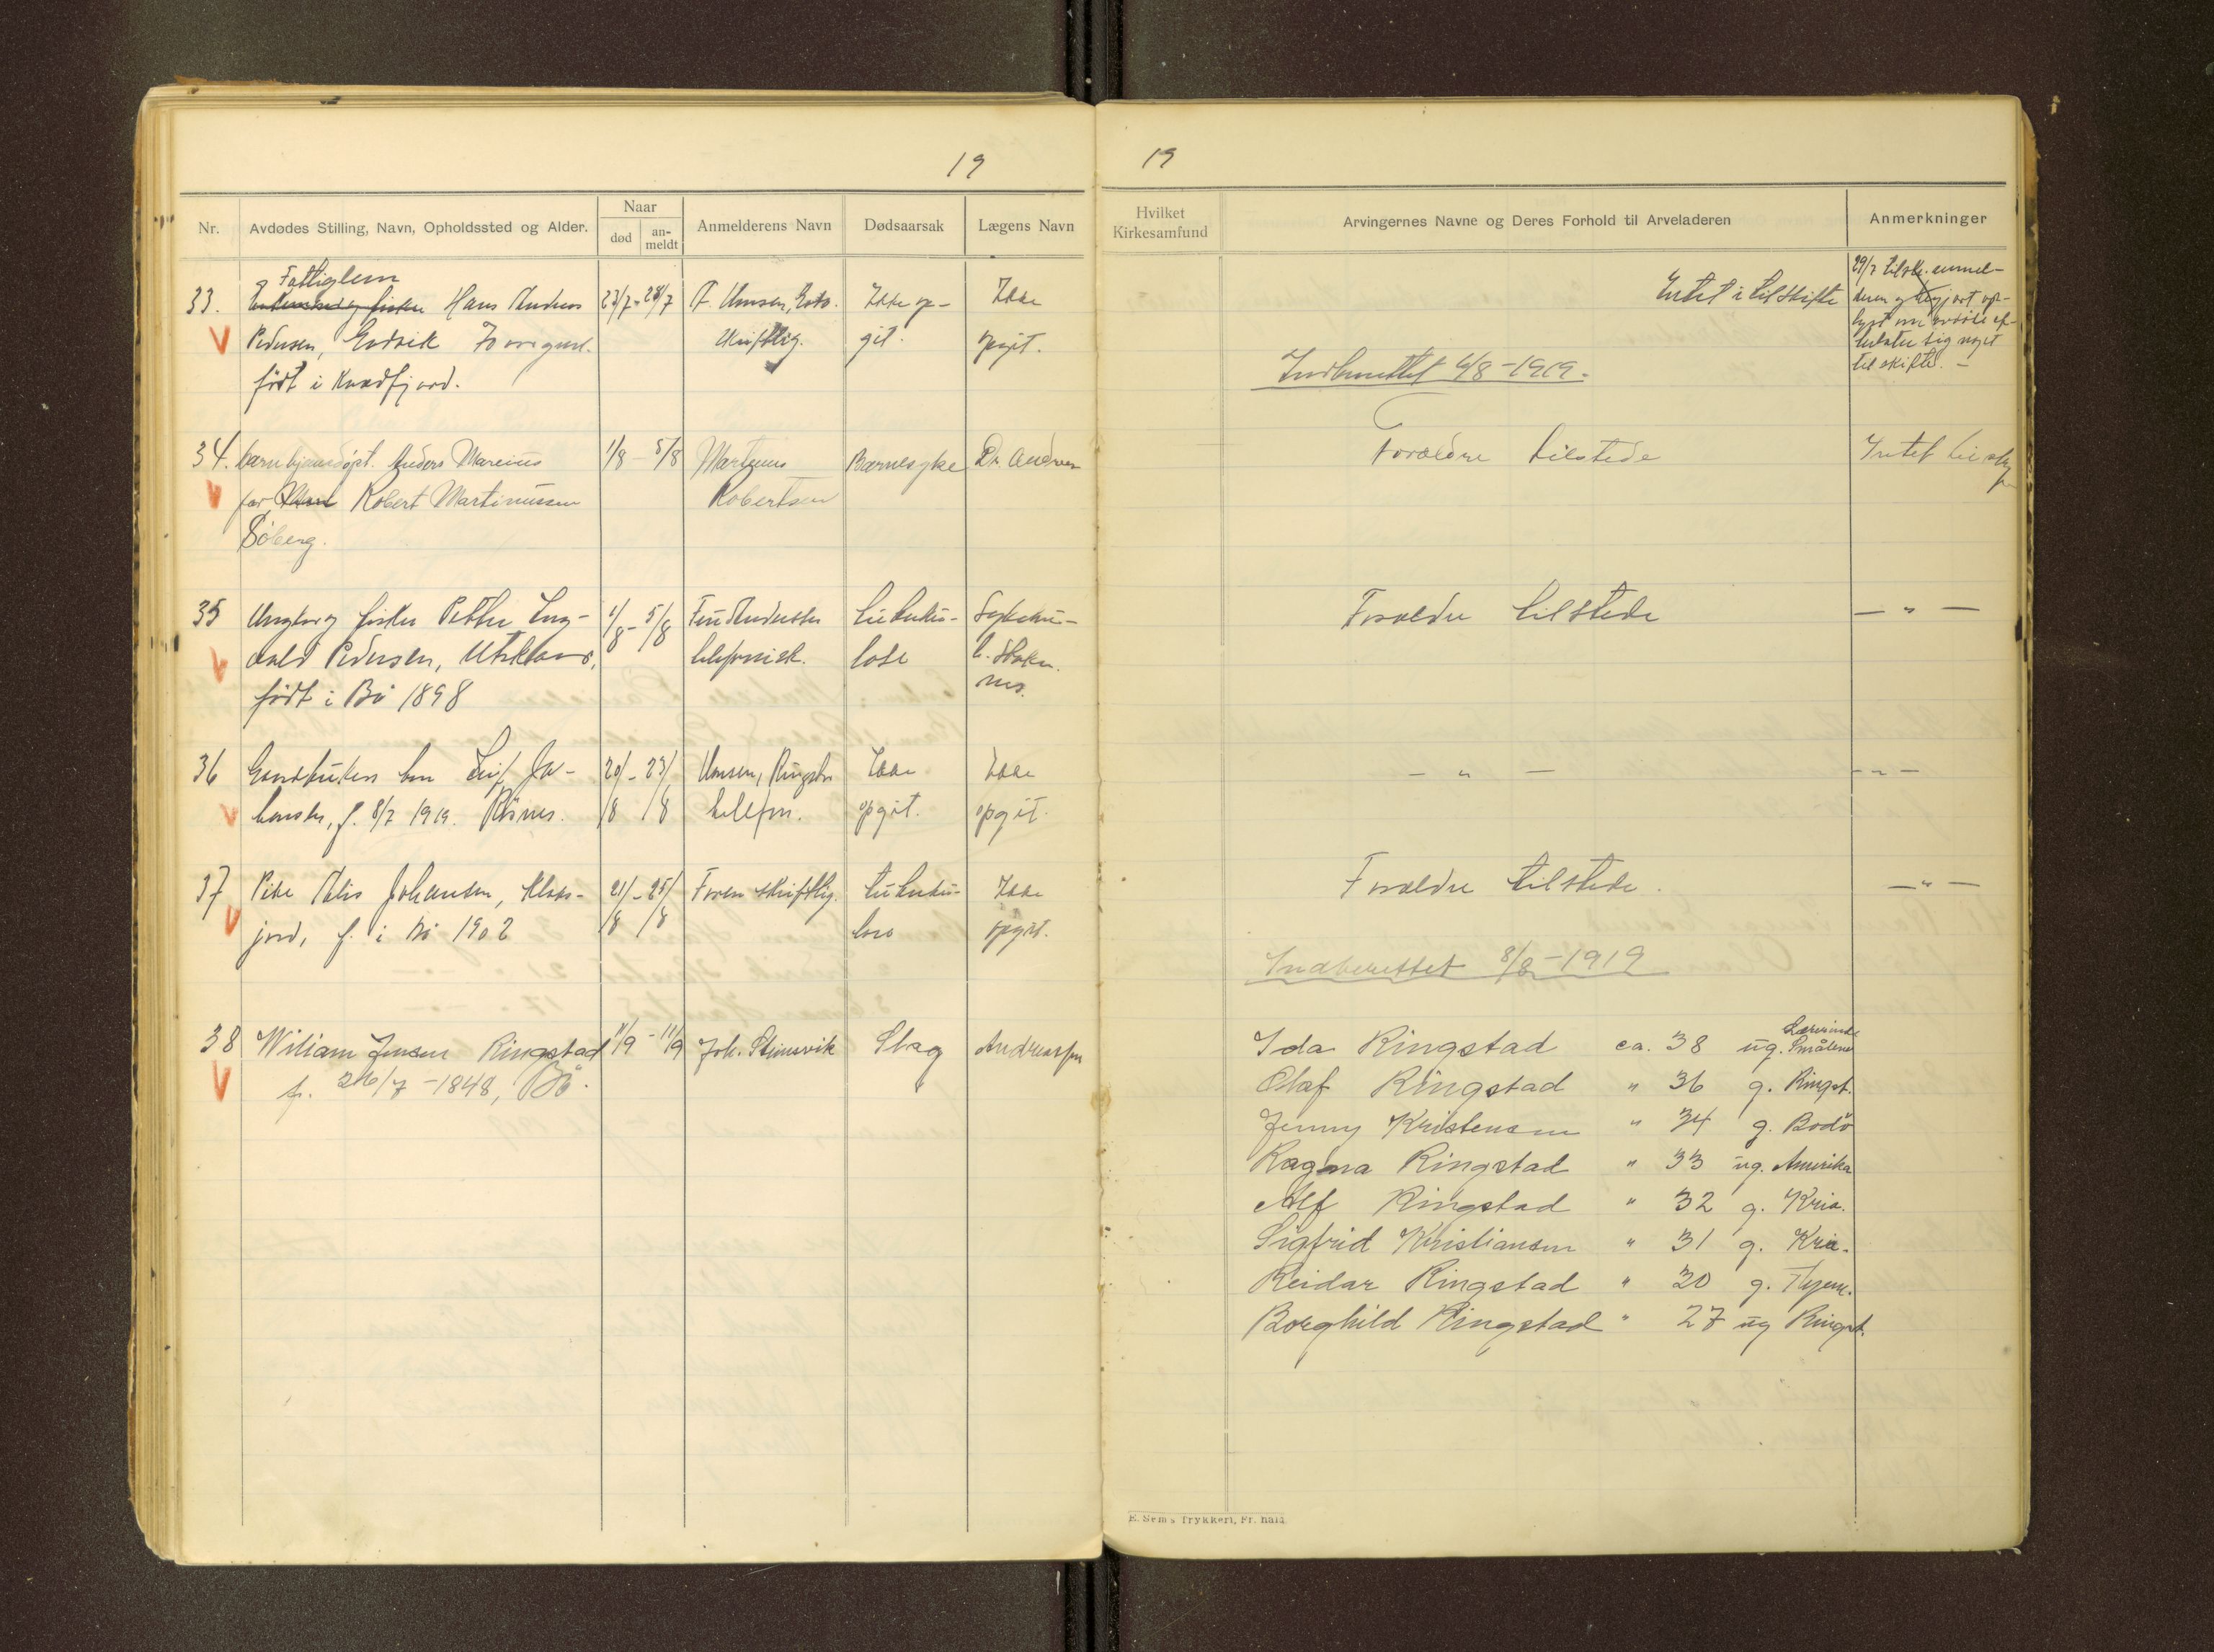 19
Nr.
Avdødes Stilling, Navn, Opholdssted og Alder.
Naar
død
an-
meldt
Anmelderens Navn
Dødsaarsak
Lægens Navn
33.
Fattiglem
Hans Andreas
Pedersen, Eidsvik 70 aar gml.
født i Kvædfjord.
23/7 - 28/7
skriftlig.
Ikke op-
git.
Ikke
opgit.
34.
barn hjemdøpt. Anders Mareius
far Robert Martinussen
Søberg.
1/8 - 5/8
Martinus
Robertsen
Barnesyke
Dr. Andrea
35
Ungkar fisker Petter Ing-
vald Pedersen, Utskars,
født i Bø 1898
1/8 - 5/8
telefonisk.
tuberku-
lose
Sykehu-
36
barn Leif Jo-
hansen, f. 8/7 1919. Risnes.
20/8 - 23/8
telefon.
Ikke
opgit.
Ikke
opgit.
37
Pike Johansen, Klaks-
jord, f. i Bø 1902
21/8 - 25/8
skriftlig.
tuberku-
lose
Ikke
opgit.
38
Wiliam Jensen Ringstad
f. 26/7 - 1848, Bø.
11/9 - 11/9
Joh. Steinsvik
Slag
Andreassen
19
Hvilket
Kirkesamfund
Arvingernes Navne og Deres Forhold til Arveladeren
Anmerkninger
Intet i til skifte
29/7 anmel-
deren
til skifte. -
Indberettet 6/8 - 1919.
Forældre tilstede
Intet til
Forældre tilstede
— " —
— " —
— " —
Forældre tilstede.
— " —
Indberettet 8/8 - 1919
Ida Ringstad ca. 38 ug. Lærerinde Smålene
Olaf Ringstad " 36 g. Ringst.
Jenny Kristensen " 34 g. Bodö
Ragna Ringstad " 33 ug. Amerika
Alf Ringstad " 32 g. Kria.
Sigfrid Kristiansen " 31 g. Kria.
Reidar Ringstad " 30 g. Hjem.
Borghild Ringstad " 27 ug Ringst.
E. Sem's Trykkeri, Fr. hald